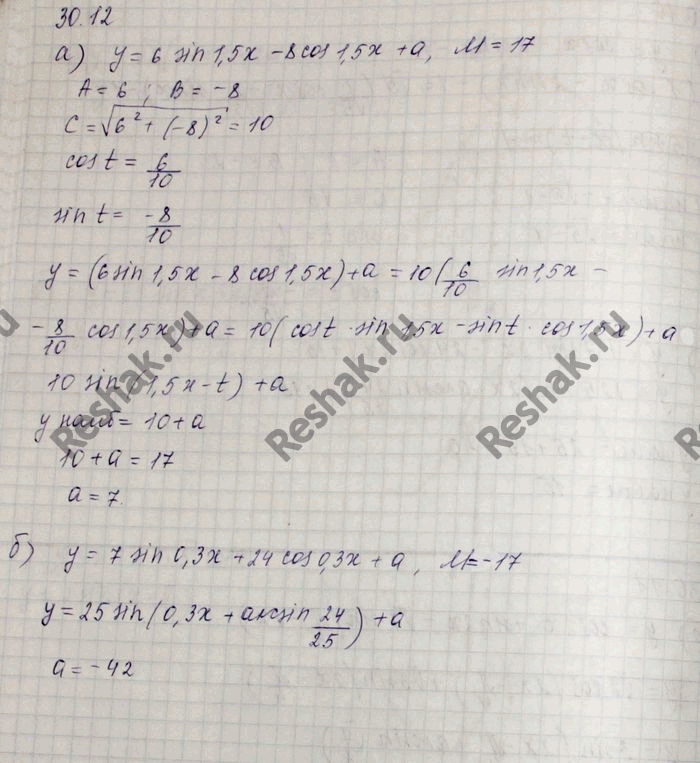 30.12
а) y = 6 sin 1,5x - 8 cos 1,5x + a, M = 17
A = 6; B = -8
C = √(6² + (-8)²) = 10
cos t = 6/10
sin t = -8/10
y = (6 sin 1,5x - 8 cos 1,5x) + a = 10(6/10 sin 1,5x -
- 8/10 cos 1,5x) + a = 10(cos t · sin 1,5x - sin t · cos 1,5x) + a
10 sin (1,5x - t) + a
y наиб = 10 + a
10 + a = 17
a = 7.
б) y = 7 sin 0,3x + 24 cos 0,3x + a, M = -17
y = 25 sin(0,3x + arcsin 24/25) + a
a = -42
Reshak.ru
Reshak.ru
Reshak.ru